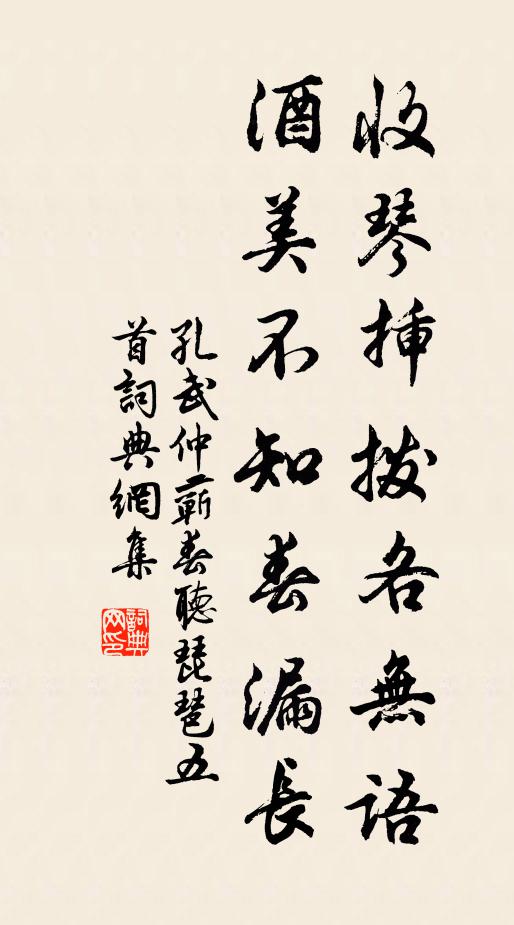 收琴插撥各無語
酒美不知春漏長
孔武仲蘄春聽琵琶五
首詞典網集
詞典
網印